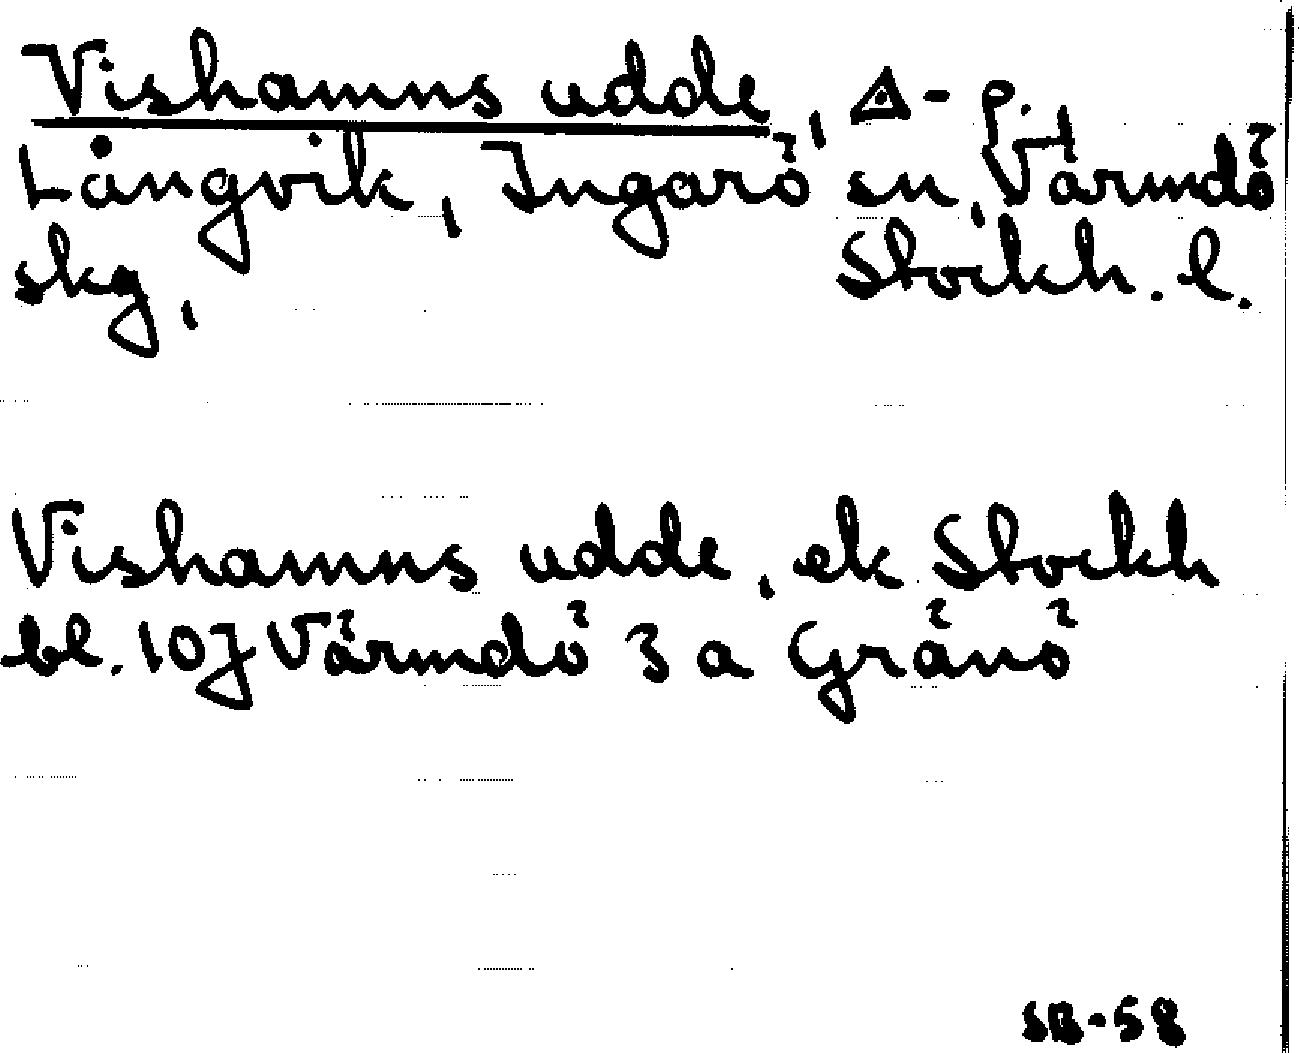 Vishamns udde, △-p.
Långvik, Ingarö sn, Värmdö
skg, Stockh. l.
Vishamns udde, ek Stockh
bl. 10J Värmdö 3a Gränö
SB-58